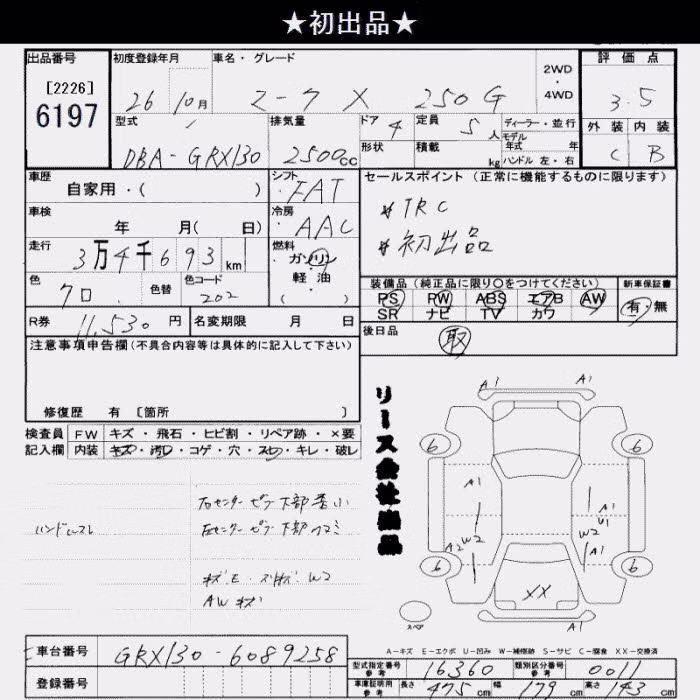 ★初出品★
出品番号 初度登録年月 車名・グレード 2WD・4WD 評価点
[2226]
6197
26 10月 マークX 250G 3.5
型式 排気量 ドア 4 定員 5人 ディーラー・並行 外装 内装
モデル年式 年
DBA-GRX130 2500cc 形状 積載 kg ハンドル 左・右 C B
車歴 シフト セールスポイント(正常に機能するものに限ります)
自家用・( ) FAT
*TRC
車検 冷房
年 月( 日) AAC
*初出品
走行 燃料
3万4千693km ガソリン
軽・油
( )
色 色替 色コード
クロ 202
装備品(純正品に限り〇をつけてください) 新車保証書
PS PW ABS エアB AW 有・無
SR ナビ TV カワ
R券 11,530円 名変期限 月 日
後日品 取
注意事項申告欄(不具合内容等は具体的に記入して下さい)
修復歴 有 [箇所 ]
検査員 FW キズ・飛石・ヒビ割・リペア跡・×要
記入欄 内装 キズ・汚レ・コゲ・穴・スレ・キレ・破レ
リース会社出品
A1 A1
6 6
A1 A1
U1
W2 W2
A2 A1
6 6
XX
スペア
A1 A1
右センターピラー下部
ハンドルスレ
左センターピラー下部
W2
AWキズ
A-キズ E-エクボ U-凹み W-補修跡 S-サビ C-腐食 XX-交換済
車台番号 GRX130-6089258
登録番号
型式指定番号 参考 16360 類別区分番号 参考 0011
車庫証明用 参考 長さ 475cm 幅 179cm 高さ 143cm